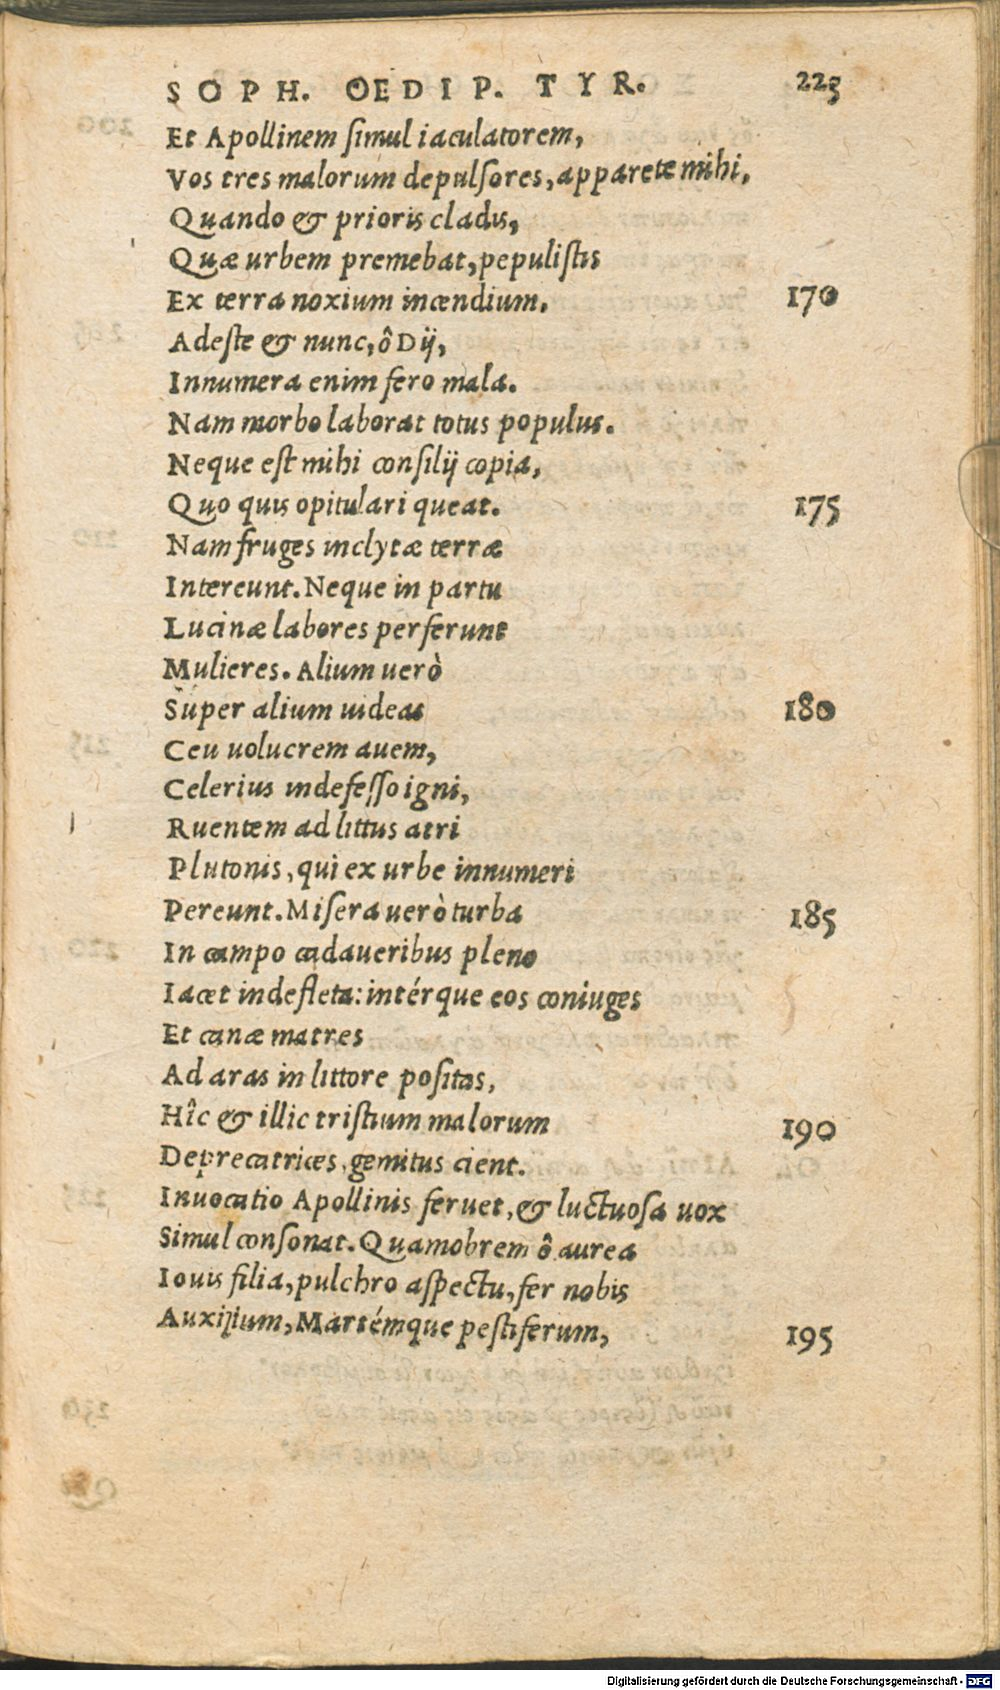 SOPH. OEDIP. TYR. 223
Et Apollinem ſimul iaculatorem,
Vos tres malorum depulſores, apparete mihi,
Quando & prioris cladis,
Quæ urbem premebat, pepuliſtis
Ex terra noxium incendium, 170
Adeſte & nunc, ô Dij,
Innumera enim fero mala.
Nam morbo laborat totus populus.
Neque eſt mihi conſilij copia,
Quo quis opitulari queat. 175
Nam fruges inclytæ terræ
Intereunt. Neque in partu
Lucinæ labores perferunt
Mulieres. Alium uerò
Super alium uideas 180
Ceu uolucrem auem,
Celerius indefeſſo igni,
Ruentem ad littus atri
Plutonis, qui ex urbe innumeri
Pereunt. Miſera uerò turba 185
In campo cadaueribus pleno
Iacet indefleta: intérque eos coniuges
Et canæ matres
Ad aras in littore poſitas,
Hîc & illic triſtium malorum 190
Deprecatrices, gemitus cient.
Inuocatio Apollinis feruet, & luctuoſa uox
Simul conſonat. Quamobrem ô aurea
Iouis filia, pulchro aſpectu, fer nobis
Auxilium, Martémque peſtiferum, 195
Digitalisierung gefördert durch die Deutsche Forschungsgemeinschaft - DFG